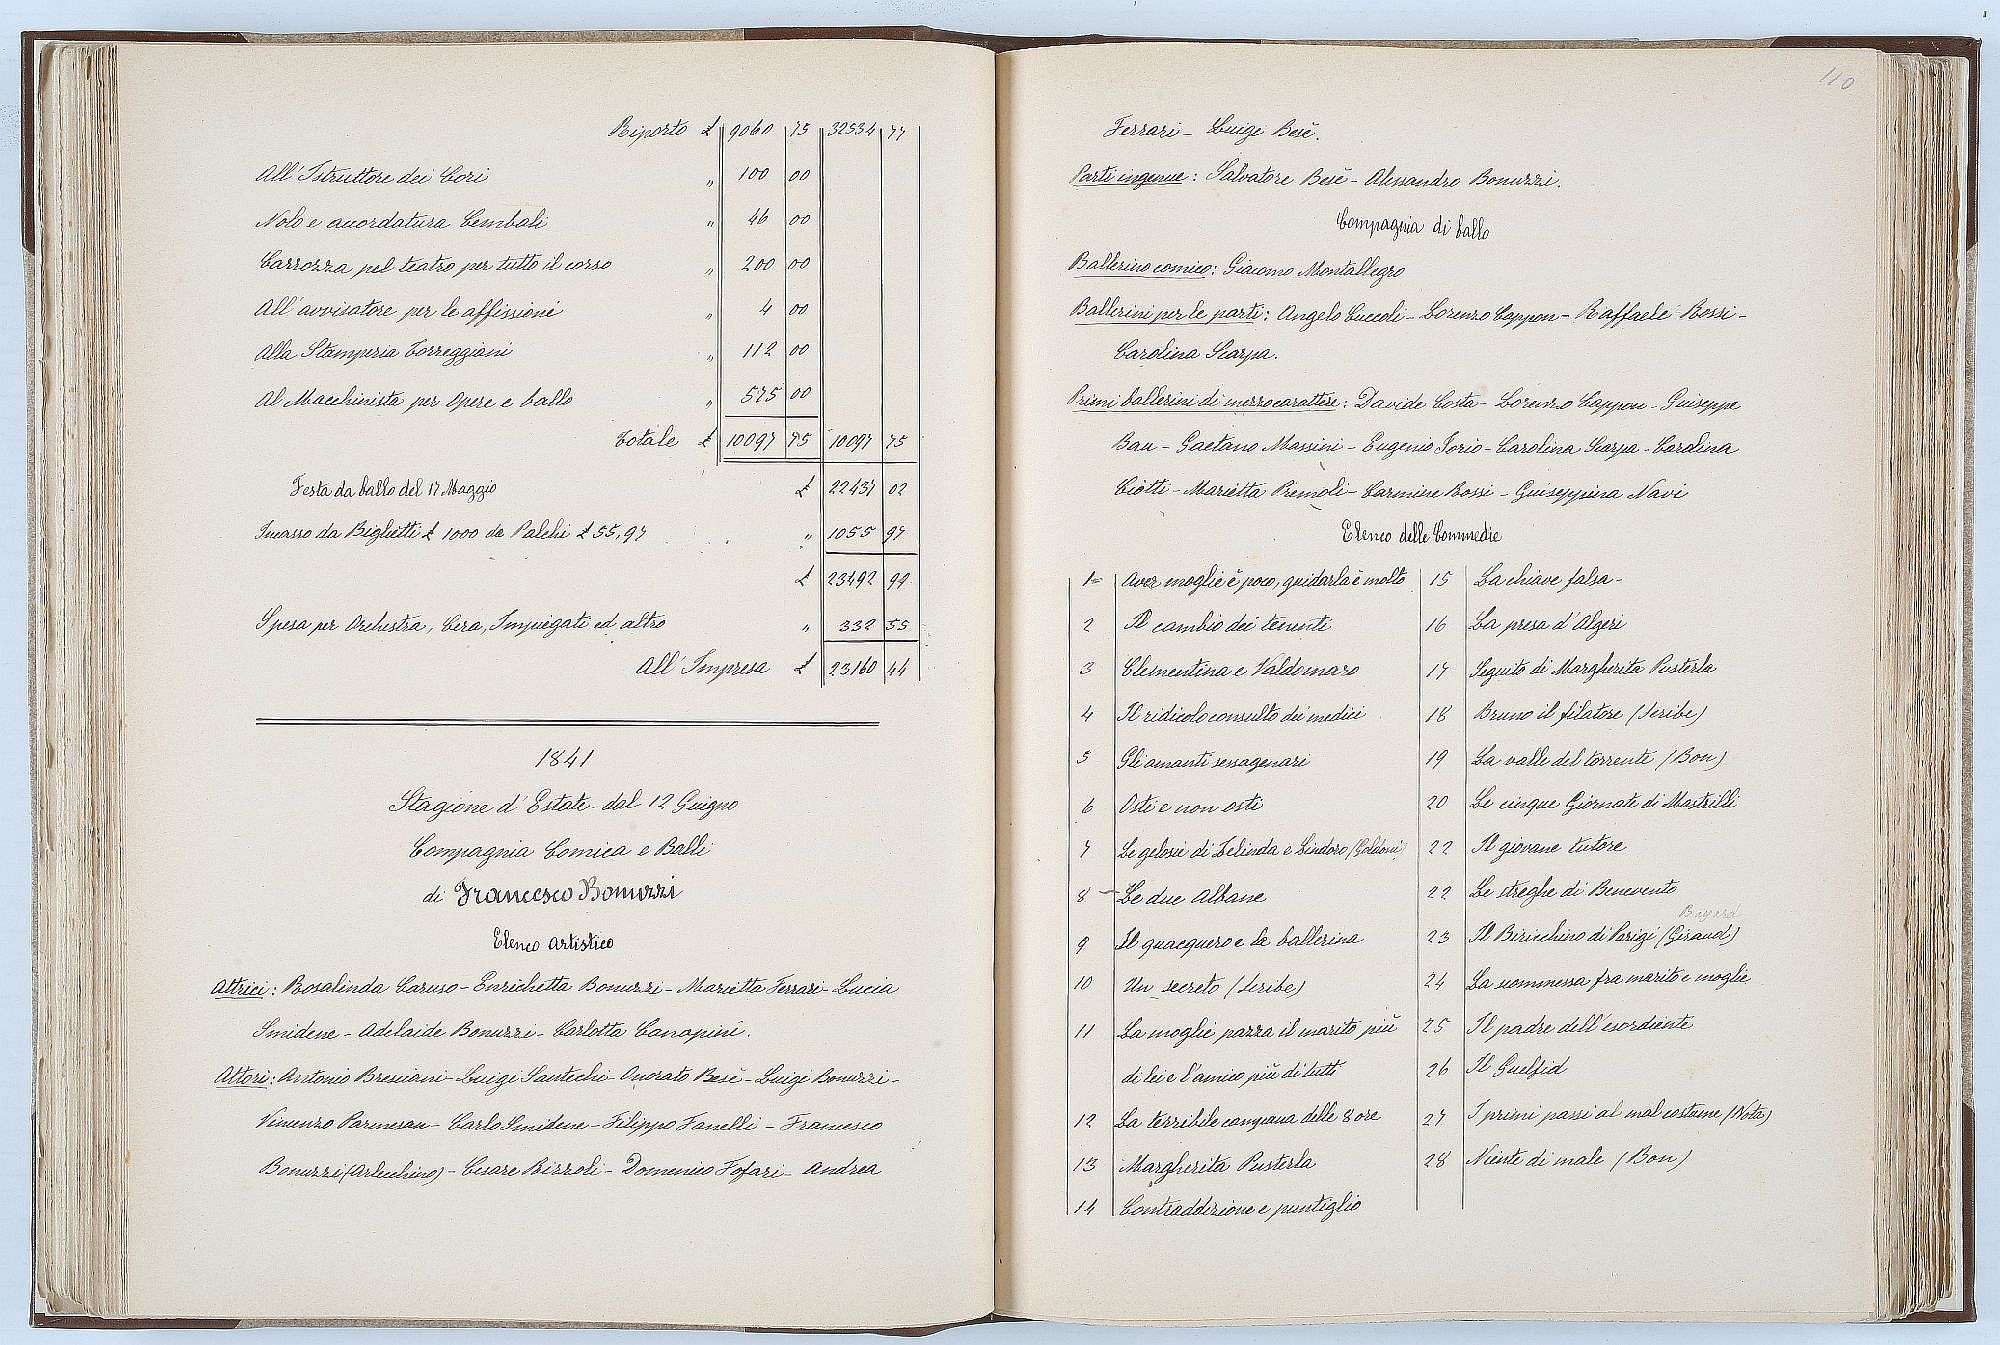 Riporto £ 9060 75 32534 77
All'Istruttore dei Cori " 100 00
Nolo e accordatura Cembali " 46 00
Carrozza pel teatro per tutto il corso " 200 00
All'avvisatore per le affissioni " 4 00
Alla Stamperia Torreggiani " 112 00
Al Macchinista per Opere e ballo " 575 00
Totale £ 10097 75 10097 75
Festa da ballo del 17 Maggio £ 22437 02
Incasso da Biglietti £ 1000 da Palchi £ 55,97 " 1055 97
£ 23492 99
Spesa per Orchestra, Cera, Impiegati ed altro " 332 55
All'Impresa £ 23160 44
1841
Stagione d'Estate dal 12 Giugno
Compagnia Comica e Balli
di Francesco Bonuzzi
Elenco Artistico
Attrici: Rosalinda Caruso - Enrichetta Bonuzzi - Marietta Ferrari - Lucia
Smidene - Adelaide Bonuzzi - Carlotta Canopini.
Attori: Antonio Bresciani - Luigi Santechi - Onorato Besè - Luigi Bonuzzi -
Vincenzo Parmesan - Carlo Smidene - Filippo Fanelli - Francesco
Bonuzzi (Arlecchino) - Cesare Rizzoli - Domenico Fofari - Andrea
110
Ferrari - Luigi Besè.
Parti ingenue: Salvatore Besè - Alessandro Bonuzzi.
Compagnia di ballo
Ballerino comico: Giacomo Montallegro
Ballerini per le parti: Angelo Cuccoli - Lorenzo Cappon - Raffaele Rossi -
Carolina Scarpa.
Primi ballerini di mezzo carattere: Davide Costa - Lorenzo Cappon - Guiseppe
Bau - Gaetano Massini - Eugenio Torio - Carolina Scarpa - Carolina
Ciotti - Marietta Premoli - Carmine Rossi - Guiseppina Navi
Elenco delle Commedie
1= Aver moglie è poco, guidarla è molto
2 Il cambio dei tenenti
3 Clementina e Valdomaro
4 Il ridicolo consulto dei medici
5 Gli amanti sessagenari
6 Osti e non osti
7 Le gelosie di Zelinda e Lindoro (Goldoni)
8 - Le due Albane
9 Il quacquero e la ballerina
10 Un secreto (Scribe)
11 La moglie pazza il marito più
di lei e l'amico più di tutti
12 La terribile campana delle 8 ore
13 Margherita Pusterla
14 Contraddizione e puntiglio
15 La chiave falsa -
16 La presa d'Algeri
17 Seguito di Margherita Pusterla
18 Bruno il filatore (Scribe)
19 La valle del torrente (Bon)
20 Le cinque Giornate di Mastrilli
22 Il giovane tutore
22 Le streghe di Benevento
Bayard
23 Il Biricchino di Parigi (Giraud)
24 La scommessa fra marito e moglie
25 Il padre dell'esordiente
26 Il Guelfid
27 I primi passi al mal costume (Nota)
28 Niente di male (Bon)